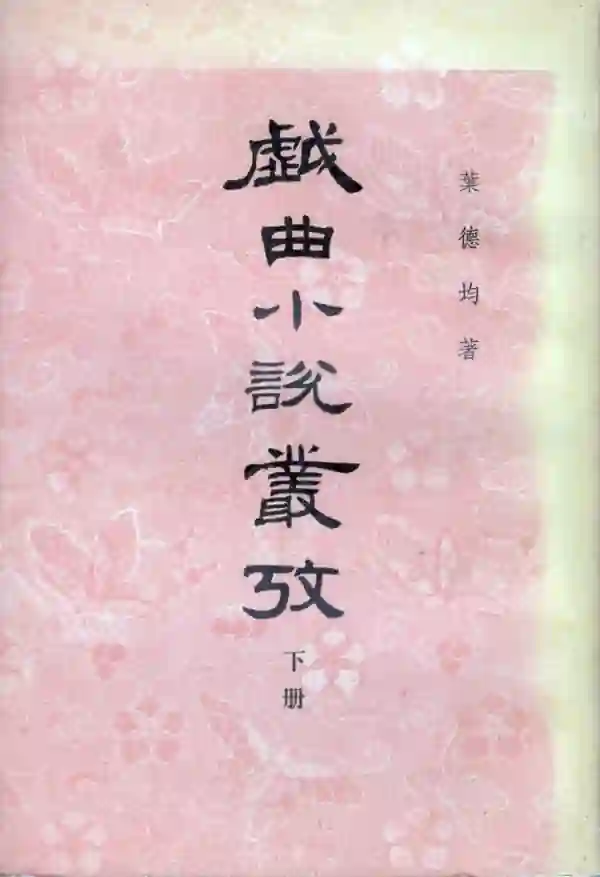 葉德均著
戯曲小說叢攷
下册